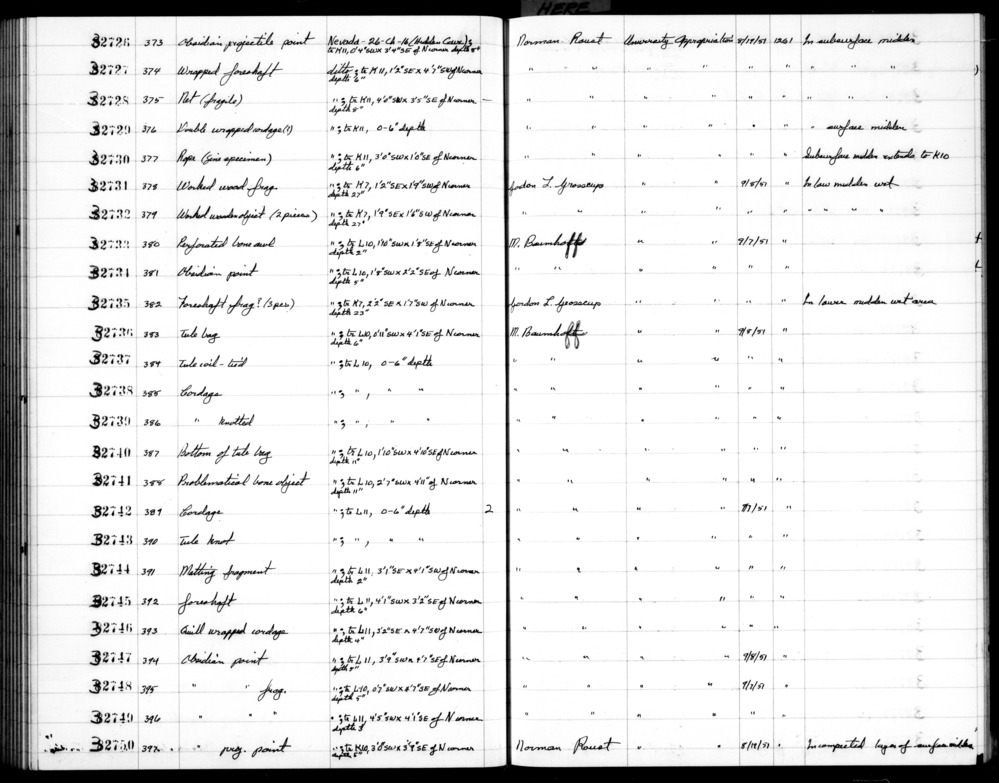 HERE
32726 373 Obsidian projectile point Nevada-26-Ch-16 (Hidden Cave); to K11, 0'4"SW x 3'4"SE of N corner depth 8" Norman Roust University Appropriation 8/19/51 1251 In subsurface midden
32727 374 Wrapped foreshaft ditto; to K11, 1'2"SE x 4'7"SW of N corner depth 6" " " " " " " " " "
32728 375 Net (fragile) "; to K11, 4'6"SW x 3'5"SE of N corner depth 5" — " " " " " " " " "
32729 376 Double wrapped cordage(?) "; to K11, 0-6" depth " " " " " " " surface midden
32730 377 Rope (fine specimen) "; to K11, 3'0"SW x 1'0"SE of N corner depth 6" " " " " " " Subsurface midden extends to K10
32731 378 Worked wood frag. "; to K7, 1'2"SE x 1'9"SW of N corner depth 27" Gordon L. Grosscup " " 9/8/51 " In low midden wet
32732 379 Worked wooden object (2 pieces) "; to K7, 1'9"SE x 1'6"SW of N corner depth 27" " " " " " " " " " "
32733 380 Perforated bone awl "; to L10, 1'10"SW x 1'8"SE of N corner depth 2" M. Baumhoff " " 9/7/51 "
32734 381 Obsidian point "; to L10, 1'8"SW x 2'2"SE of N corner depth 5" " " " " " "
32735 382 Foreshaft frag? (3 pcs) "; to K7, 2'2"SE x 1'7"SW of N corner depth 23" Gordon L. Grosscup " " " " In lower midden wet area
32736 383 Tule bag "; to L10, 0'11"SW x 4'1"SE of N corner depth 6" M. Baumhoff " " 9/8/51 "
32737 384 Tule coil - tied "; to L10, 0-6" depth " " " " " "
32738 385 Cordage "; " , " " " " " " " "
32739 386 " knotted "; " , " " " " " " " "
32740 387 Bottom of tule bag "; to L10, 1'10"SW x 4'10"SE of N corner depth 11" " " " " " "
32741 388 Problematical bone object "; to L10, 2'7"SW x 4'11" of N corner depth 11" " " " " " "
32742 389 Cordage "; to L11, 0-6" depth 2 " " " " 9/7/51 "
32743 390 Tule knot "; " , " " " " " " " "
32744 391 Matting fragment "; to L11, 3'1"SE x 4'1"SW of N corner depth 2" " " " " " "
32745 392 foreshaft "; to L11, 4'1"SW x 3'2"SE of N corner depth 6" " " " " " "
32746 393 Quill wrapped cordage "; to L11, 3'2"SE x 4'7"SW of N corner depth 4" " " " " " "
32747 394 Obsidian point "; to L11, 3'9"SW x 4'7"SE of N corner depth " " " " 9/8/51 "
32748 395 " " frag. "; to L10, 0'7"SW x 4'7"SE of N corner depth 5" " " " " 9/7/51 "
32749 396 " " " "; to L11, 4'5"SW x 4'1"SE of N corner depth 3" " " " " " "
32750 397 " proj. point "; to K10, 3'0"SW x 3'9"SE of N corner depth 5" Norman Roust " " 8/19/51 " Incompacted layer of surface midden